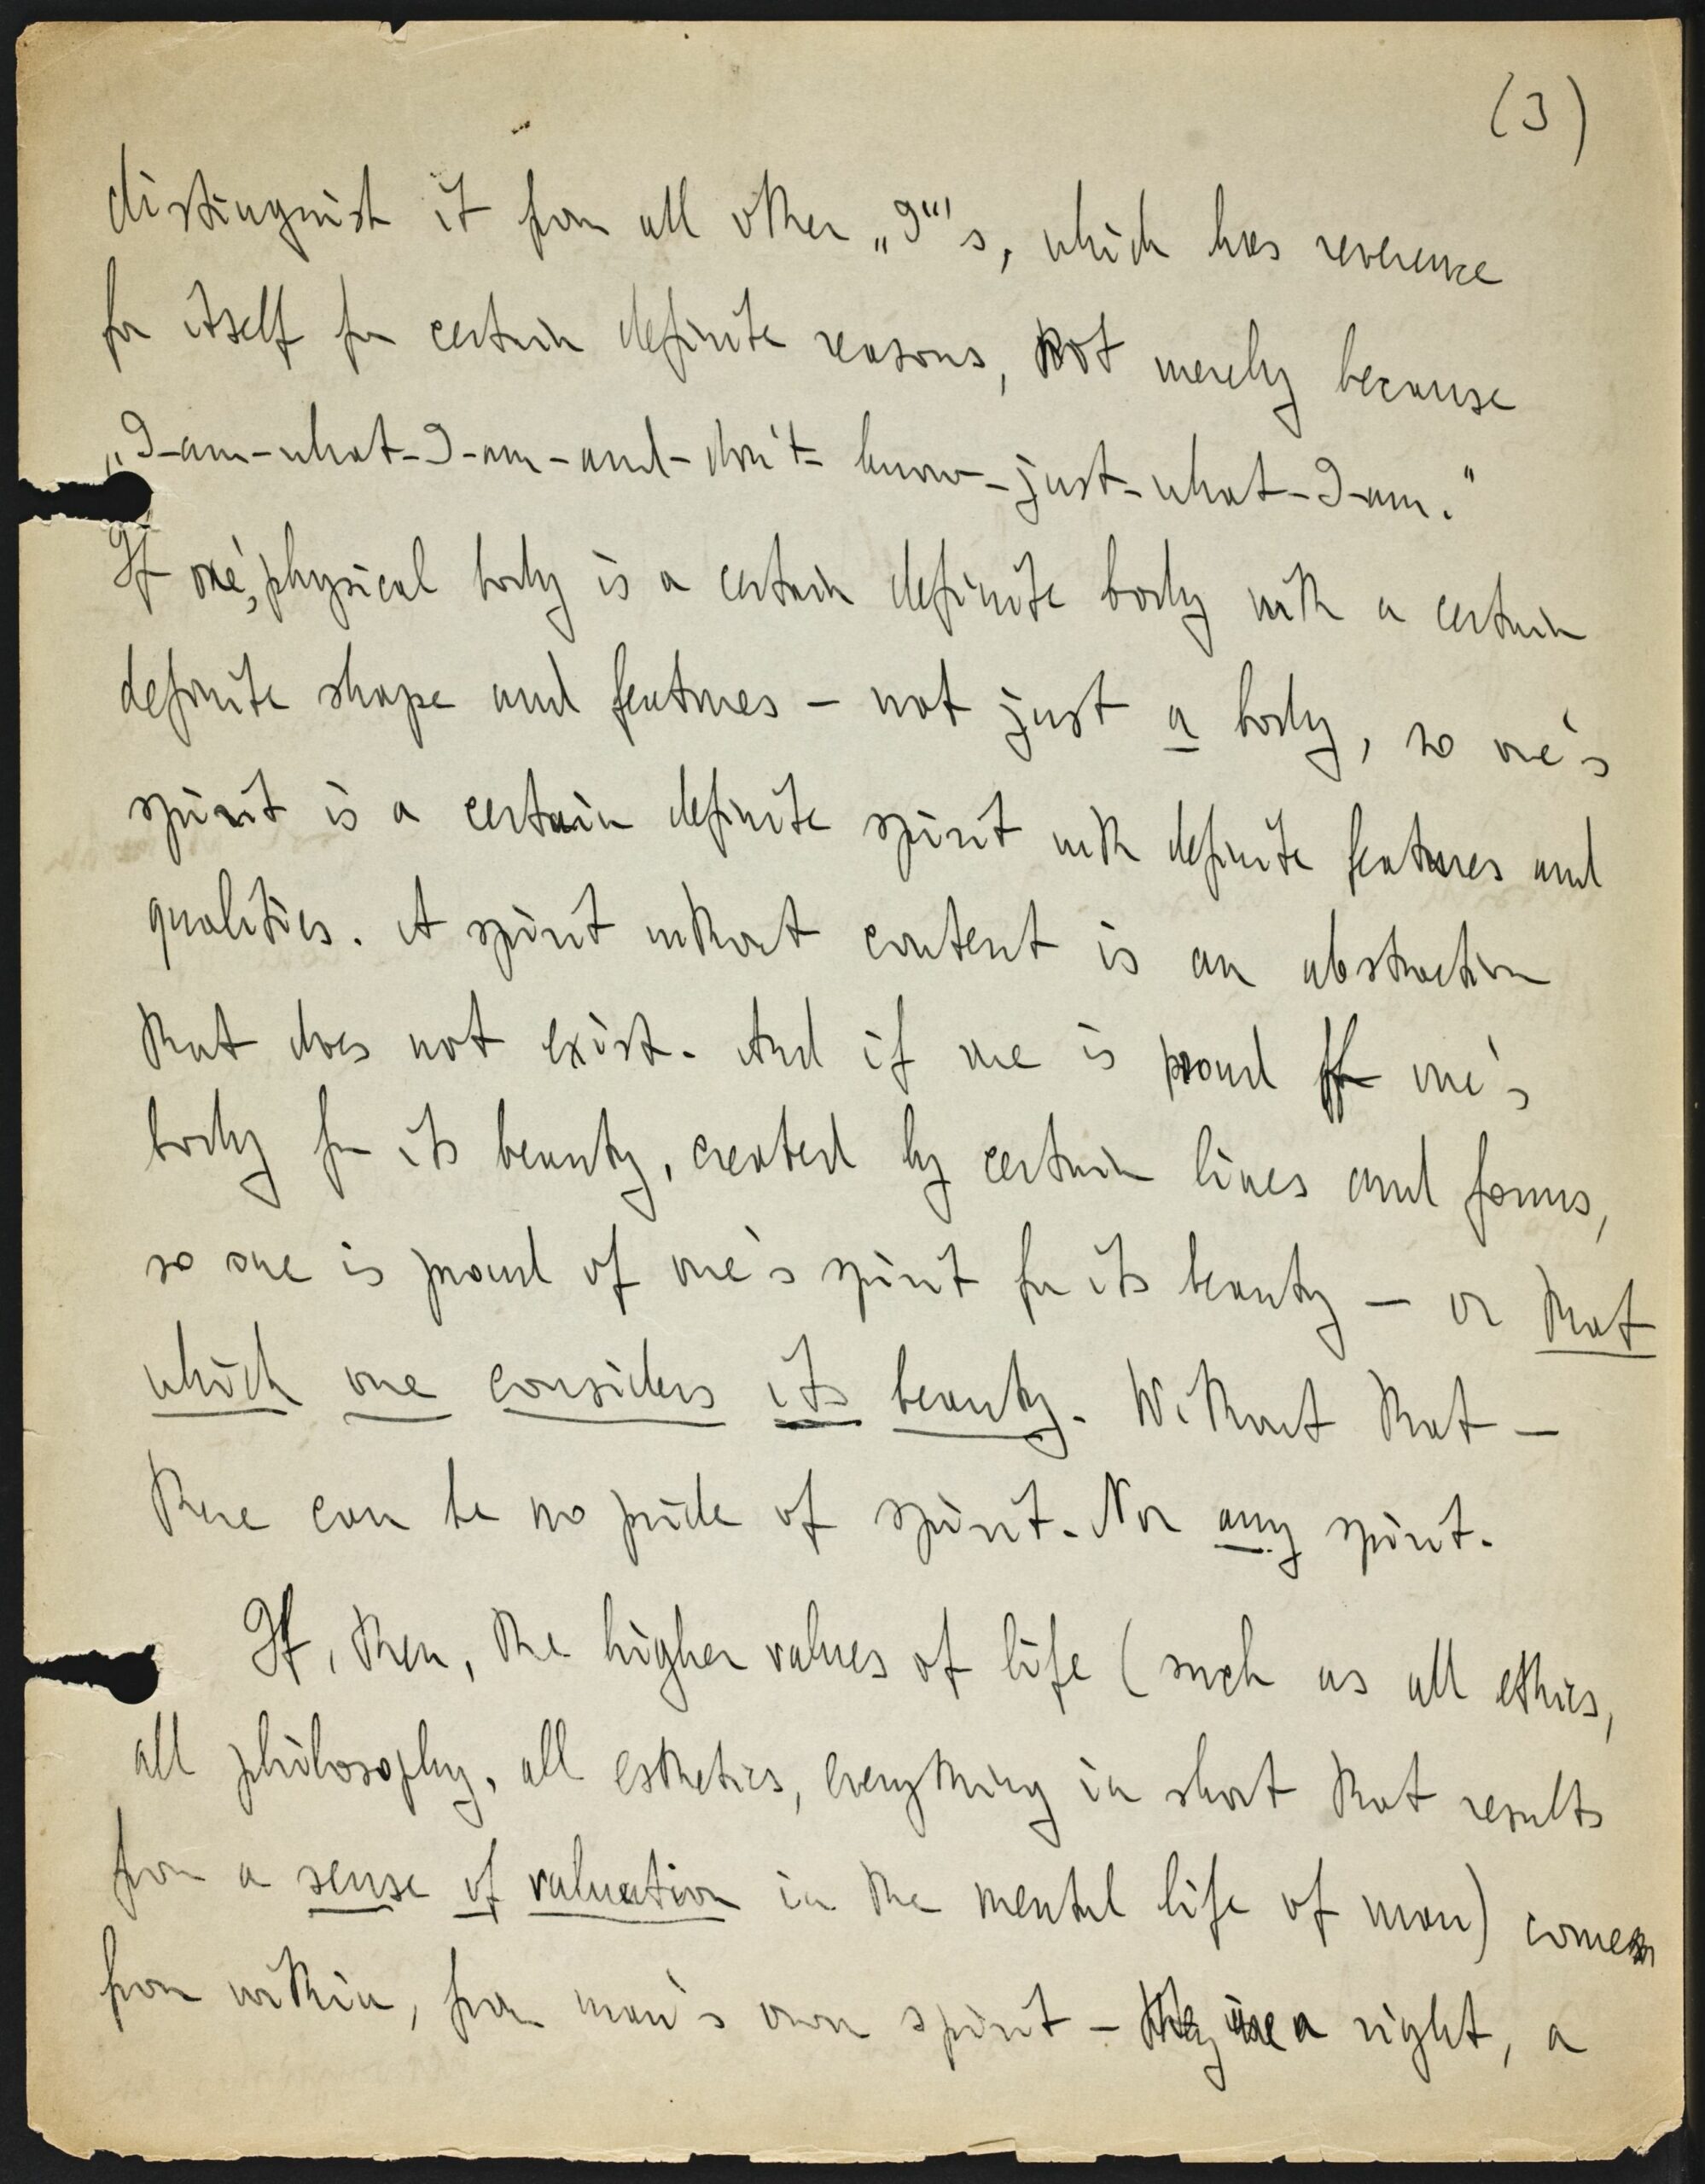 (3)
distinguish it from all other „I"'s, which has reverence
for itself for certain definite reasons, not merely because
„I-am-what-I-am-and-don't-know-just-what-I-am."
If one's physical body is a certain definite body with a certain
definite shape and features — not just a body, so one's
spirit is a certain definite spirit with definite features and
qualities. A spirit without content is an abstraction
that does not exist. And if one is proud of one's
body for its beauty, created by certain lines and forms,
so one is proud of one's spirit for its beauty — or that
which one considers its beauty. Without that —
there can be no pride of spirit. Nor any spirit.
If, then, the higher values of life (such as all ethics,
all philosophy, all esthetics, everything in short that results
from a sense of valuation in the mental life of man) come
from within, from man's own spirit — they are a right, a